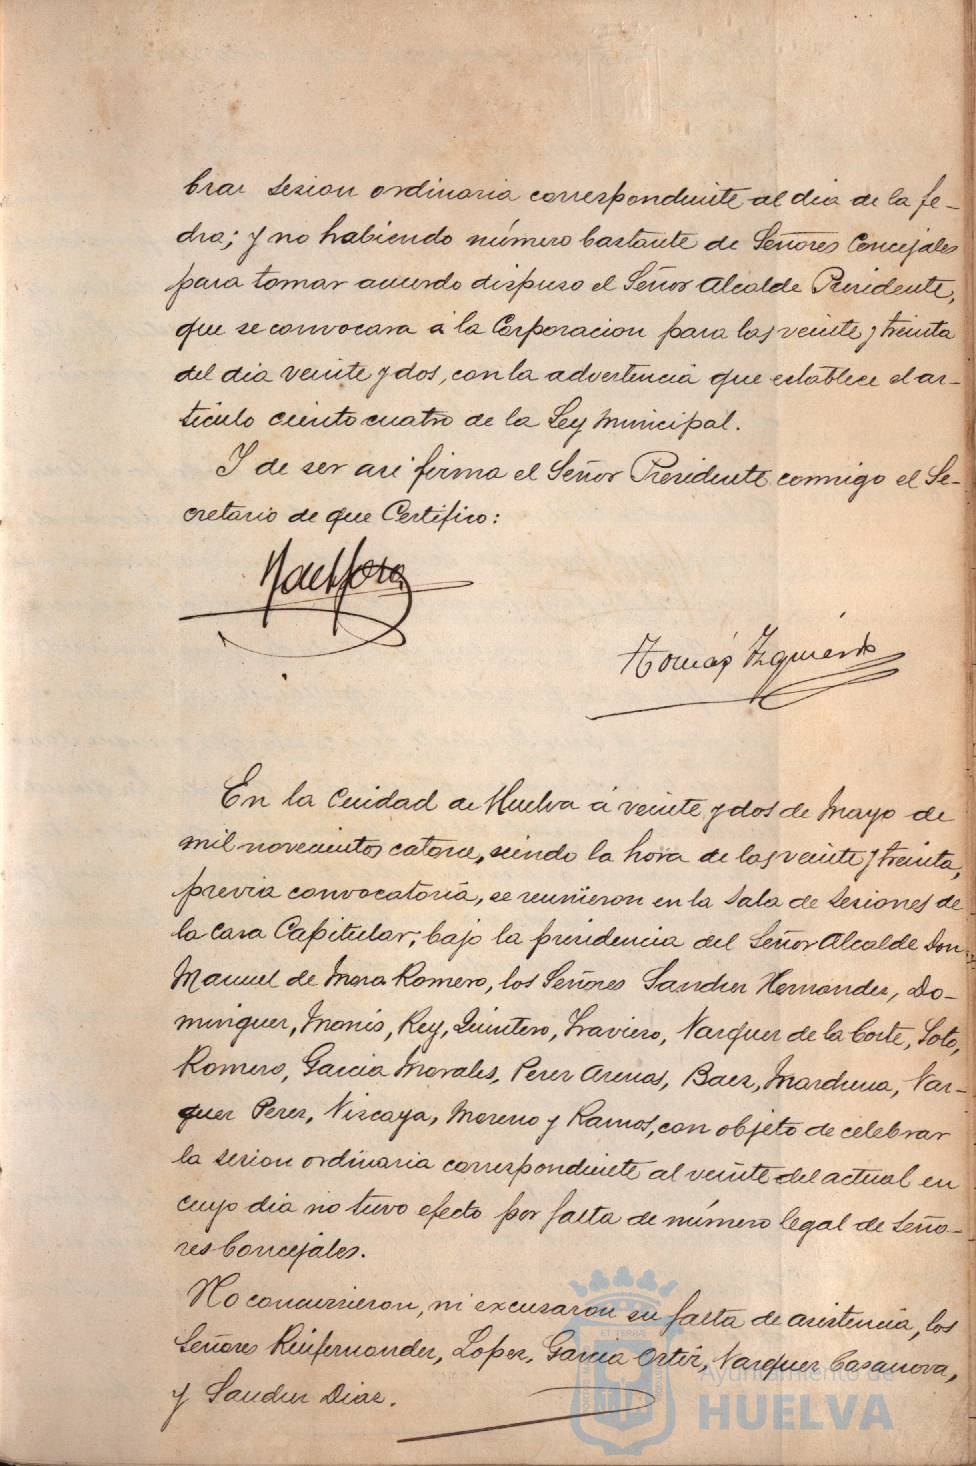 brar sesion ordinaria correspondiente al dia de la fe-
dra; y no habiendo número bastante de Señores Concejales
para tomar acuerdo dispuso el Señor Alcalde Presidente,
que se convocara á la Corporacion para las veinte y treinta
del dia veinte y dos, con la advertencia que establece el ar-
tículo ciento cuatro de la Ley Municipal.
Y de ser asi firma el Señor Presidente conmigo el Se-
cretario de que Certifico:
M de Mora
Tomás Izquierdo
En la Ciudad de Huelva á veinte y dos de Mayo de
mil novecientos catorce, siendo la hora de las veinte y treinta,
previa convocatoria, se reunieron en la Sala de Sesiones de
la Casa Capitular, bajo la presidencia del Señor Alcalde Don
Manuel de Mora Romero, los Señores Sanchez Hernandez, Do-
minguez, Monis, Rey, Quintero, Traviero, Vazquez de la Corte, Soto,
Romero, Garcia Morales, Perez Arenas, Baez, Marchena, Vaz-
quez Perez, Vizcaya, Moreno y Ramos, con objeto de celebrar
la sesion ordinaria correspondiente al veinte del actual en
cuyo dia no tuvo efecto por falta de número legal de Seño-
res Concejales.
No concurrieron, ni excusaron su falta de asistencia, los
Señores Reifernandez, Lopez, Garcia Ortiz, Vazquez Casanova,
y Sanchez Diaz.
Ayuntamiento de
HUELVA